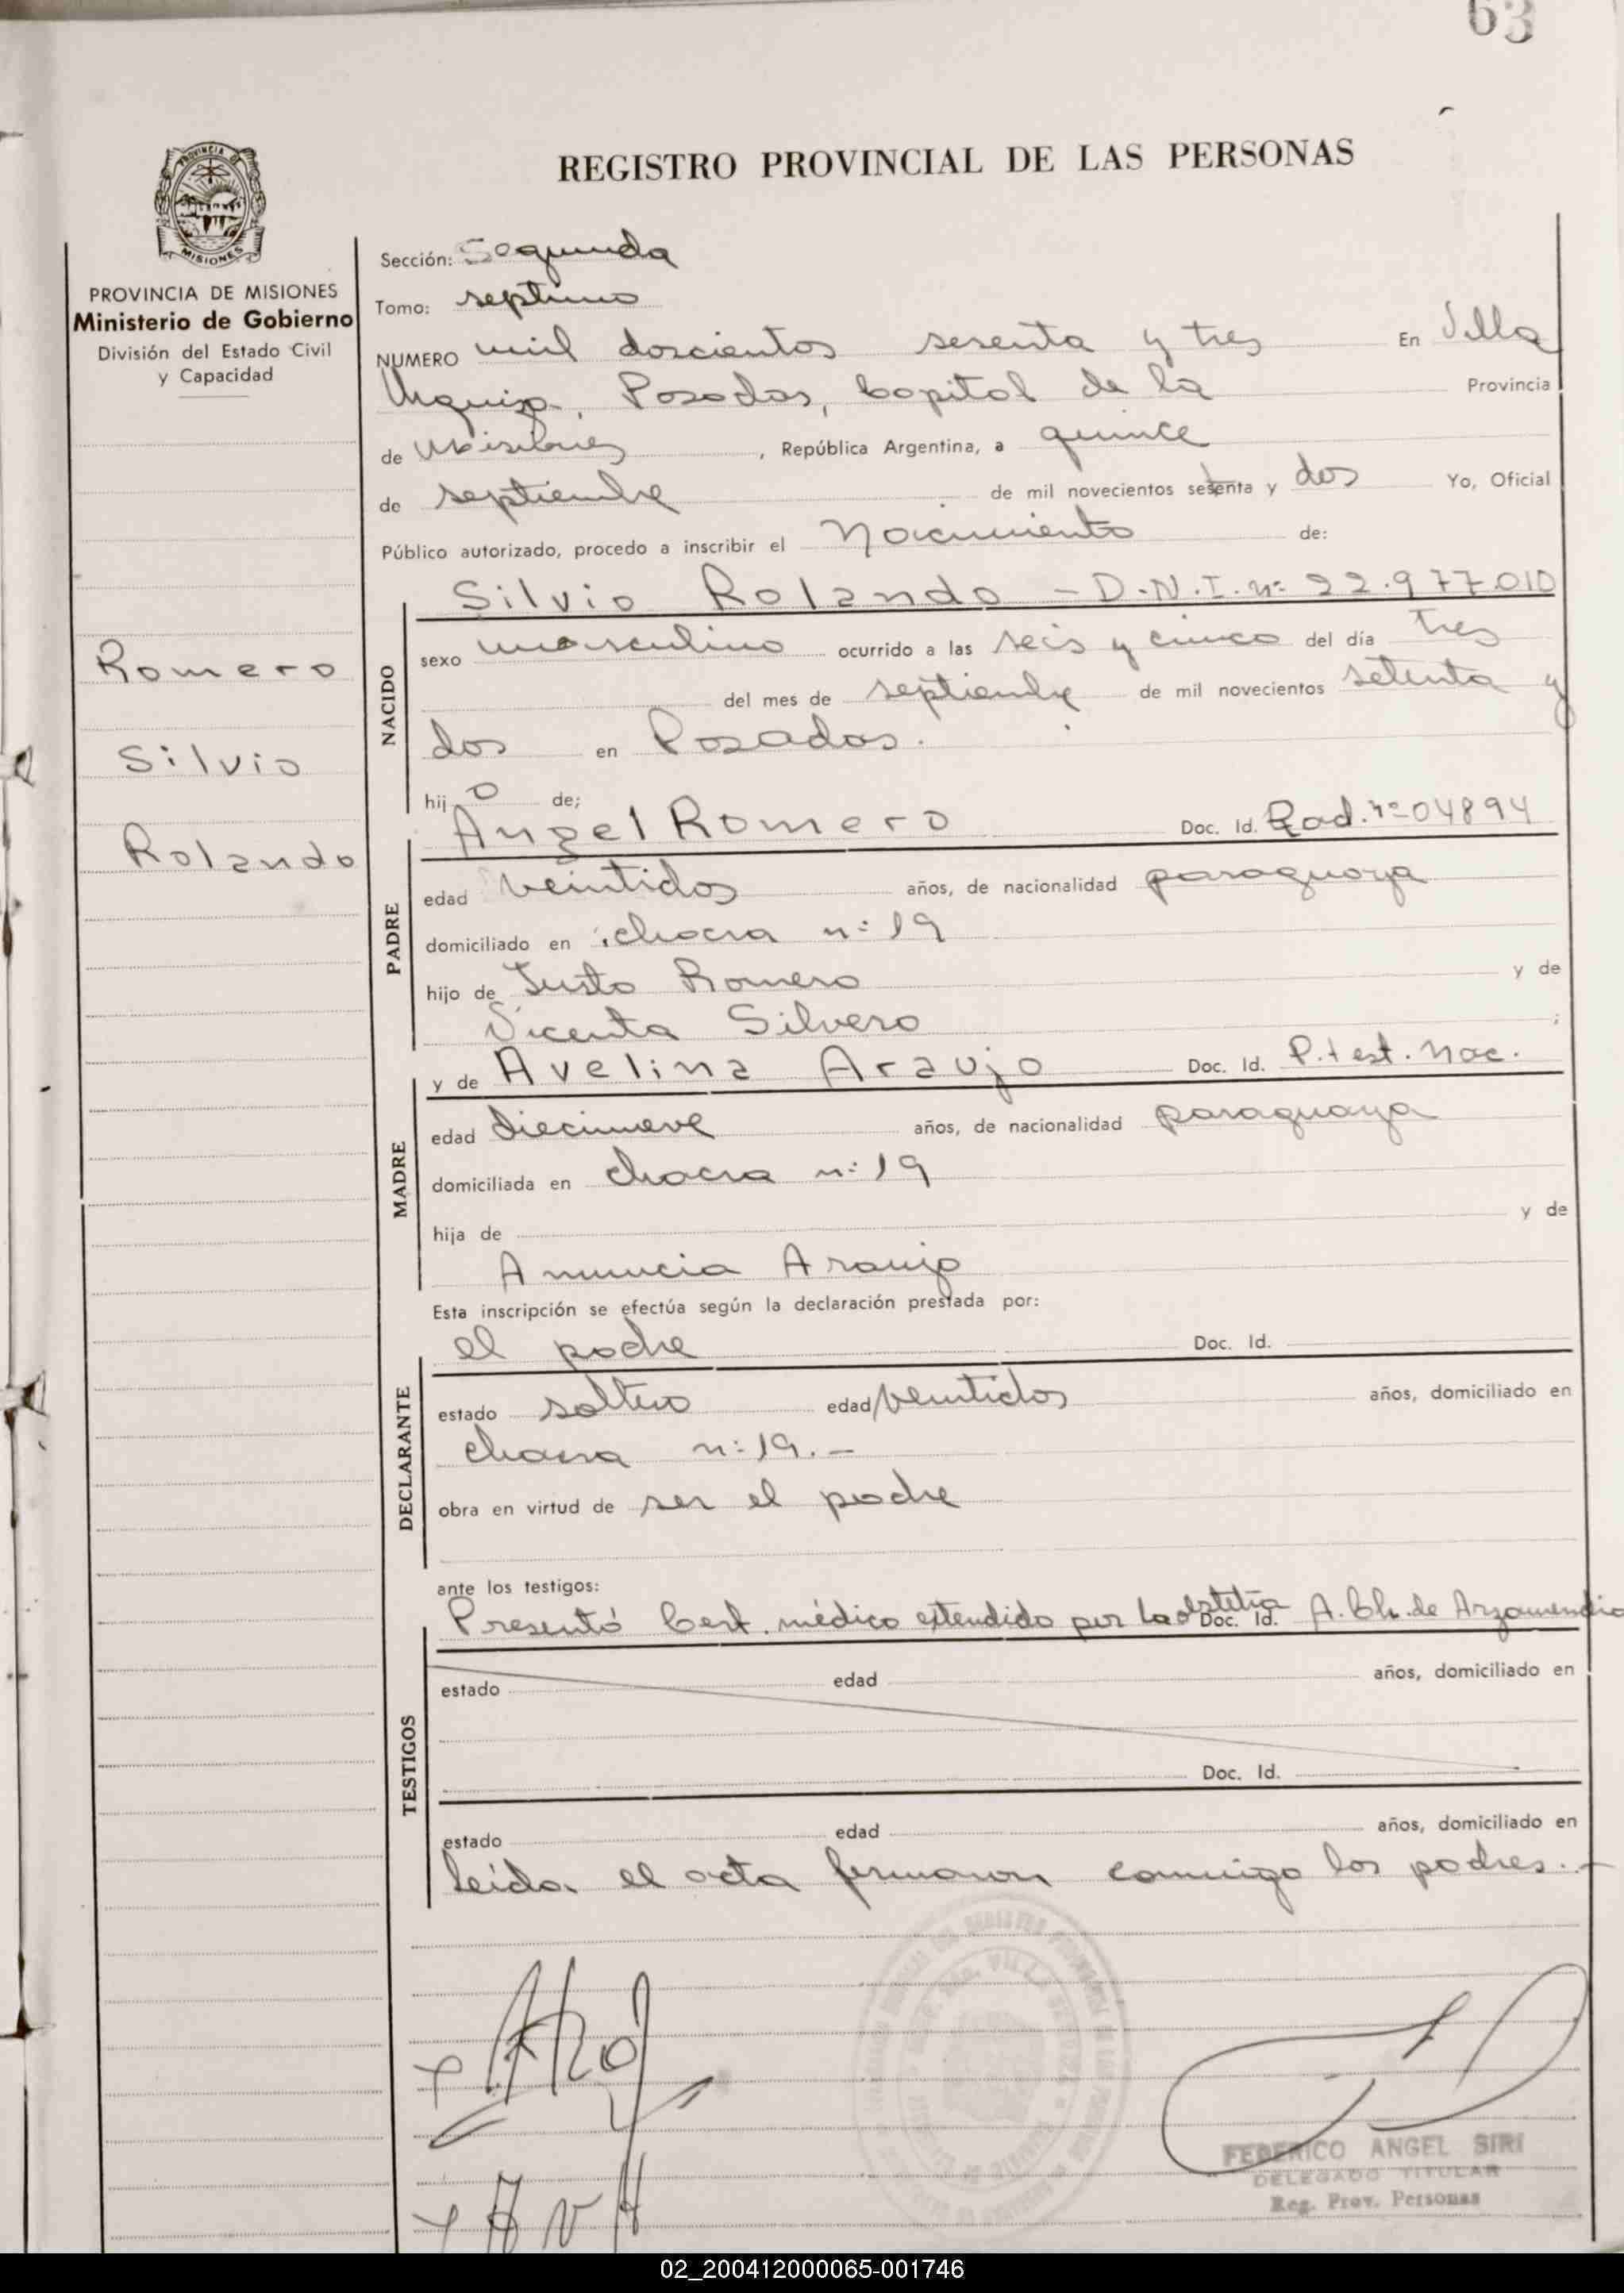 63
REGISTRO PROVINCIAL DE LAS PERSONAS
PROVINCIA DE
MISIONES
PROVINCIA DE MISIONES
Ministerio de Gobierno
División del Estado Civil
y Capacidad
Romero
Silvio
Rolando
Sección: Segunda
Tomo: septimo
NUMERO mil doscientos sesenta y tres En Villa
Urquiza, Posadas, Capital de la Provincia
de Misiones, República Argentina, a quince
de septiembre de mil novecientos setenta y dos Yo, Oficial
Público autorizado, procedo a inscribir el Nacimiento de:
Silvio Rolando - D.N.I. nº 22.977.010
NACIDO
sexo masculino ocurrido a las seis y cinco del día tres
del mes de septiembre de mil novecientos setenta y
dos en Posadas.
hijo de;
Angel Romero Doc. Id. Rad. nº 04894
PADRE
edad veintidos años, de nacionalidad paraguaya
domiciliado en chacra nº 19
hijo de Justo Romero y de
Vicenta Silvero ;
y de Avelina Araujo Doc. Id. P. test. Nac.
MADRE
edad diecinueve años, de nacionalidad paraguaya
domiciliada en chacra nº 19
hija de y de
Anuncia Araujo
Esta inscripción se efectúa según la declaración prestada por:
el padre Doc. Id.
DECLARANTE
estado soltero edad veintidos años, domiciliado en
chacra nº 19.-
obra en virtud de ser el padre
ante los testigos:
Presentó Cert. médico extendido por la Doc. Id. A. Ch. de Arzamendia
TESTIGOS
estado edad años, domiciliado en
Doc. Id.
estado edad años, domiciliado en
Leída el acta firmaron conmigo los padres.-
FEDERICO ANGEL SIRI
DELEGADO TITULAR
Reg. Prov. Personas
02_200412000065-001746